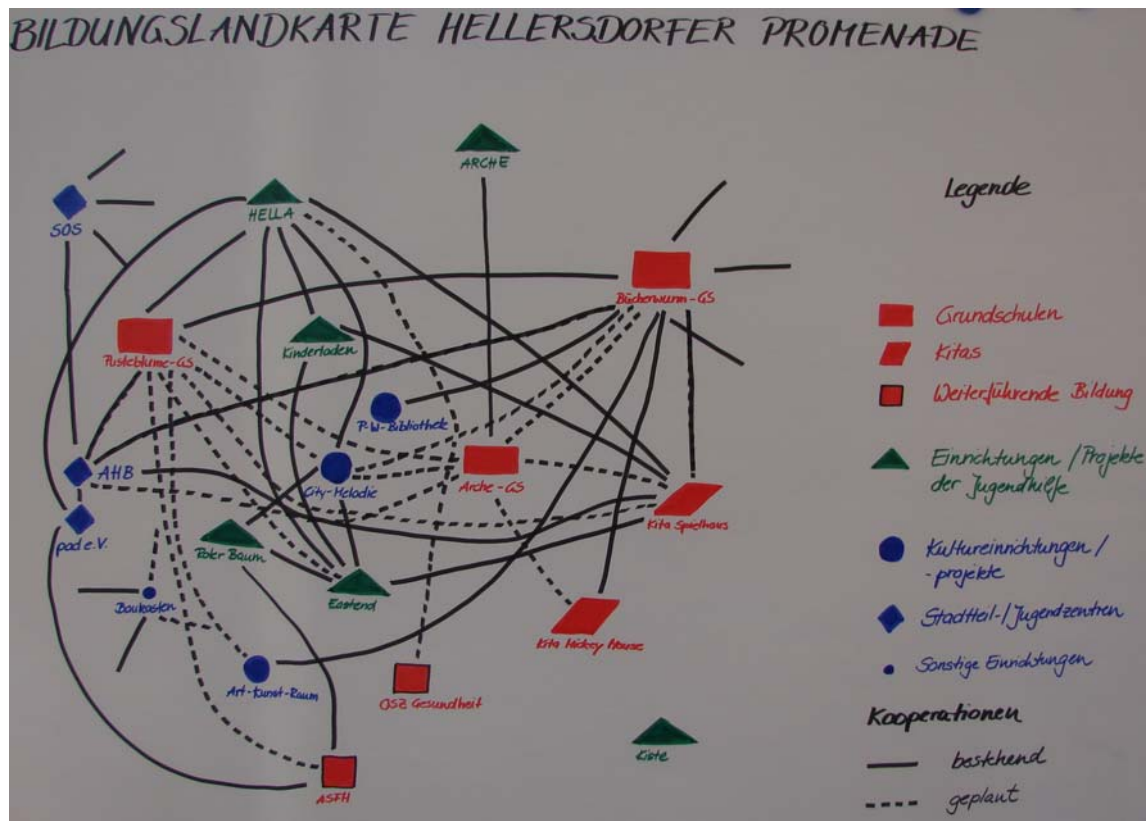 BILDUNGSLANDKARTE HELLERSDORFER PROMENADE
ARCHE
SOS
HELLA
Bücherwurm-GS
Pusteblume-GS
Kinderladen
P-W-Bibliothek
AHB
City-Melodie
Arche-GS
Kita Spielhaus
pad e.V.
Roter Baum
Eastend
Baukasten
Kita Mickey Mouse
Art-Kunst-Raum
OSZ Gesundheit
Kiste
ASFH
Legende
Grundschulen
Kitas
Weiterführende Bildung
Einrichtungen / Projekte
der Jugendhilfe
Kultureinrichtungen /
-projekte
Stadtteil-/Jugendzentren
Sonstige Einrichtungen
Kooperationen
bestehend
geplant